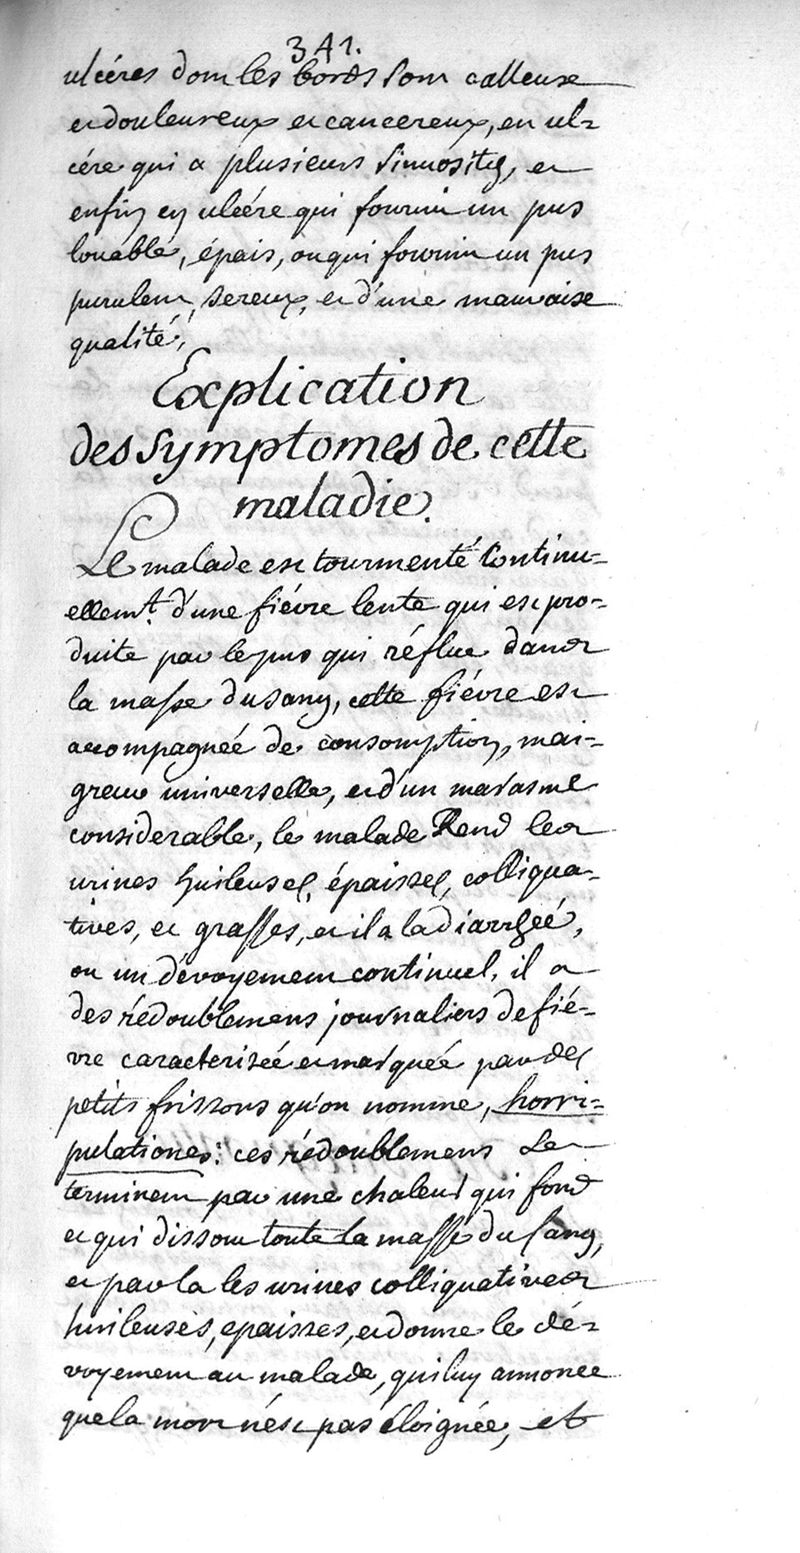 341.
ulcéres dont les bords sont calleuse
et douleureux et cancereux, en ul-
cére qui a plusieurs sinuosités, et
enfin en ulcére qui fournit un pus
louáble, épais, ou qui fournit un pus
purulent, sereux, et d'une mauvaise
qualité,
Explication
des symptomes de cette
maladie.
Le malade est tourmenté Continu-
ellemt. d'une fiévre lente qui est pro-
duite par le pus qui réflue dans
la masse du sang, cette fiévre est
accompagnée de consomption, mai-
greur universelle, et d'un marasme
considerable, le malade Rend les
urines huileuses, épaisses, colliqua-
tives, et grasses, et il a la diarrheé,
ou un dévoyement continuel, il a
des rédoublemens journaliers de fié-
vre caracterizée et marquée par des
petits frissons qu'on nomme, horri-
pulationes: ces rédoublemens Se
terminent par une chaleur qui fond
et qui dissout toute la masse du sang,
et par la les urines colliquatives
huileuses, epaisses, et donne le dé-
voyement au malade, qui luy annonce
que la mort nést pas éloignée, et